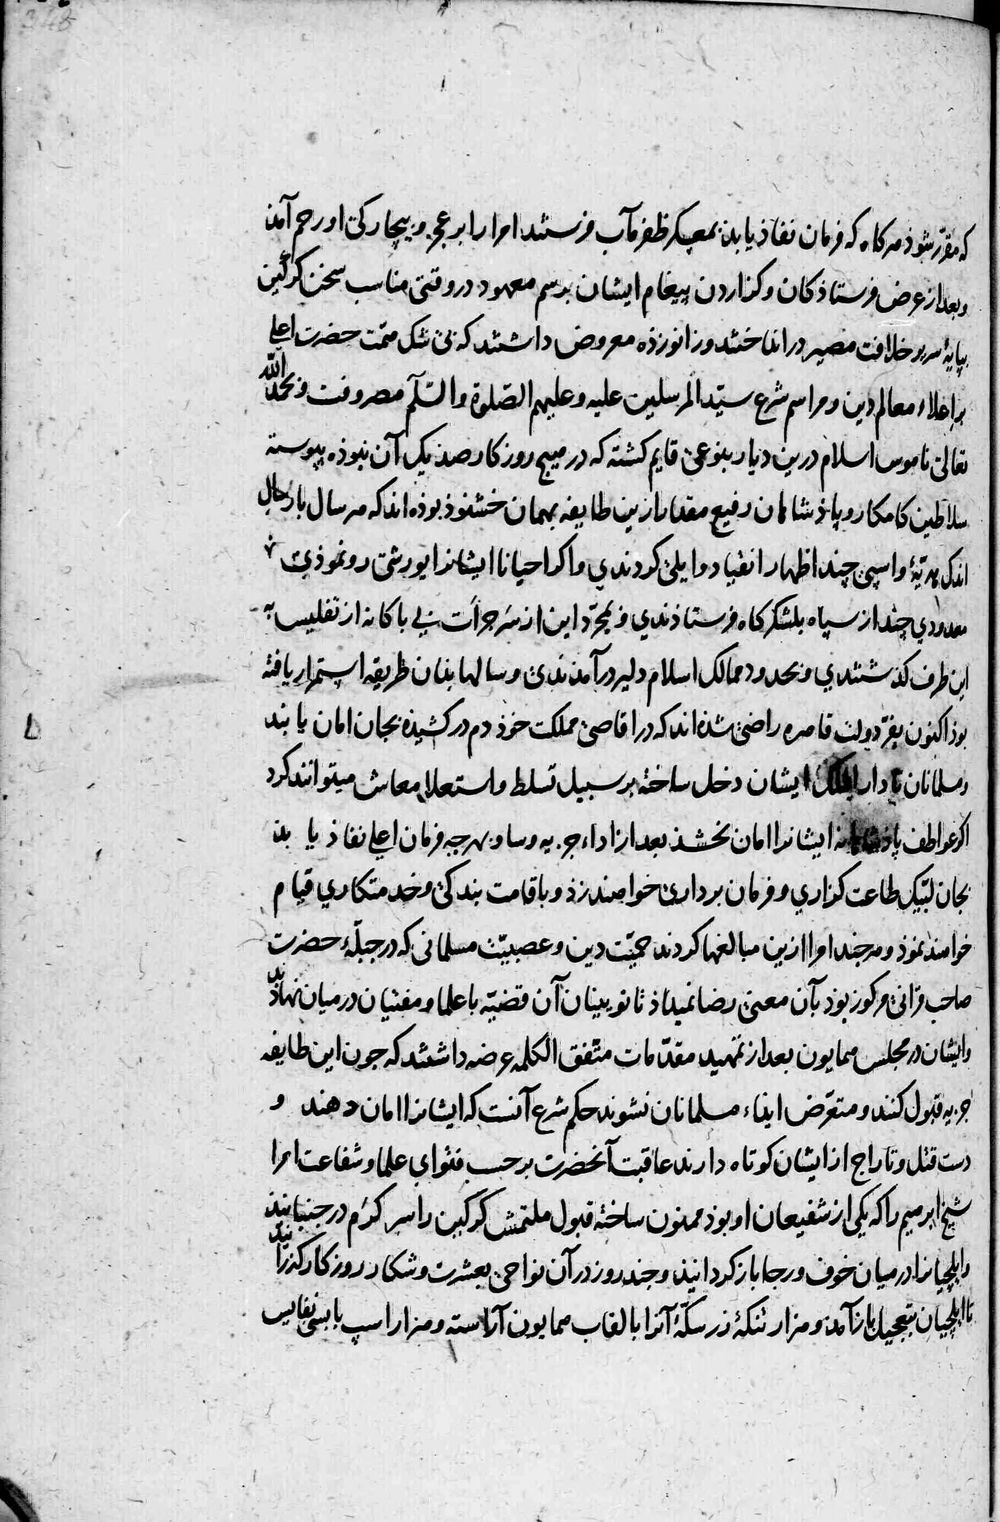 که مقرّر شود هرکاه که فرمان نفاذ یابد بمعسکر ظفر مآب فرستند امرا را بر عجز و بیچارکی او رحم آمذ
و بعد از عرض فرستاذکان و کزاردن پیغام ایشان برسم معهود در وقتی مناسب سخن کرکین
بپایهٔ سریر خلافت مصیر در انداختند و زانو زذه معروض داشتند که بی شک همّت حضرت اعلی
بر اعلاء معالم دین و مراسم شرع سیّد المرسلین علیه و علیهم الصّلوة والسّلم مصروفست و بحمد الله
تعالی ناموس اسلام درین دیار بنوعی قایم کشته که در هیچ روزکار صذ یک آن نبوذه پیوسته
سلاطین کامکار و پاذشاهان رفیع مقدار ازین طایفه بهمان خشنوذ بوذه اند که هر سال بارسال
اندک هدیّهٔ و اسپی چند اظهار انقیاد و ایلی کردندی و اکر احیانا ایشانرا یورشی رو نموذی
معدودی چند از سپاه بلشکرکاه فرستاذندی و بمجرّد این از سر جرأت بی باکانه از تفلیس به
این طرف کذشتندی و بحدود ممالک اسلام دلیر درآمدندی و سالها بذان طریقه استمرار یافته
بوذ اکنون بفرّ دولت قاهره راضی شذه اند که در اقاصی مملکت خوذ دم در کشیذه بجان امان یابند
و مسلمانان با دار الملک ایشان دخل ساخته بر سبیل تسلط و استعلا معاش میتوانند کرد
اکر عواطف پاذشاهانه ایشانرا امان بخشذ بعد از اداء جزیه و ساو بهرچه فرمان اعلی نفاذ یابذ
بجان لبّیک طاعت کزاری و فرمان برداری خواهند زذ و باقامت بندکی و خدمتکاری قیام
خواهند نموذ و هرچند امرا ازین مبالغها کردند حمیّت دین و عصبیّت مسلمانی که در جبلّهٔ حضرت
صاحب قرانی مرکوز بوذ بآن معنی رضا نمیداذ تا نویینان آن قضیّه با علما و مفتیان در میان نهاذند
و ایشان در مجلس همایون بعد از تمهید مقدّمات متّفق الکلمه عرضه داشتند که چون این طایفه
جزیه قبول کنند و متعرّض ایذاء مسلمانان نشوند حکم شرع آنست که ایشانرا امان دهند و
دست قتل و تاراج از ایشان کوتاه دارند عاقبت آنحضرت بر حسب فتوای علما و شفاعت امرا
شیخ ابرهیم را که یکی از شفیعان او بوذ ممنون ساخته قبول ملتمس کرکین را سر کرم در جنبانیذ
و ایلچیانرا در میان خوف و رجا باز کردانیذ و چند روز در آن نواحی بعشرت و شکار روزکار کذرانید
تا ایلچیان بتعجیل بازآمدند و هزار تنکهٔ زر سکّهٔ آنرا بالقاب همایون آراسته و هزار اسپ با بسی نفایس